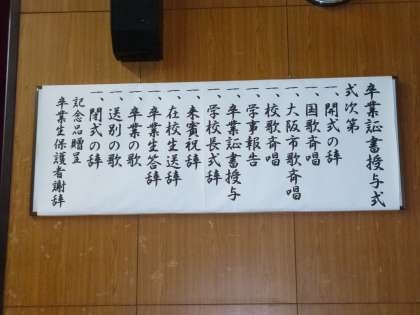 卒業証書授与式
式次第
一、開式の辞
一、国歌斉唱
一、大阪市歌斉唱
一、校歌斉唱
一、学事報告
一、卒業証書授与
一、学校長式辞
一、来賓祝辞
一、在校生送辞
一、卒業生答辞
一、卒業の歌
一、送別の歌
一、閉式の辞
記念品贈呈
卒業生保護者謝辞